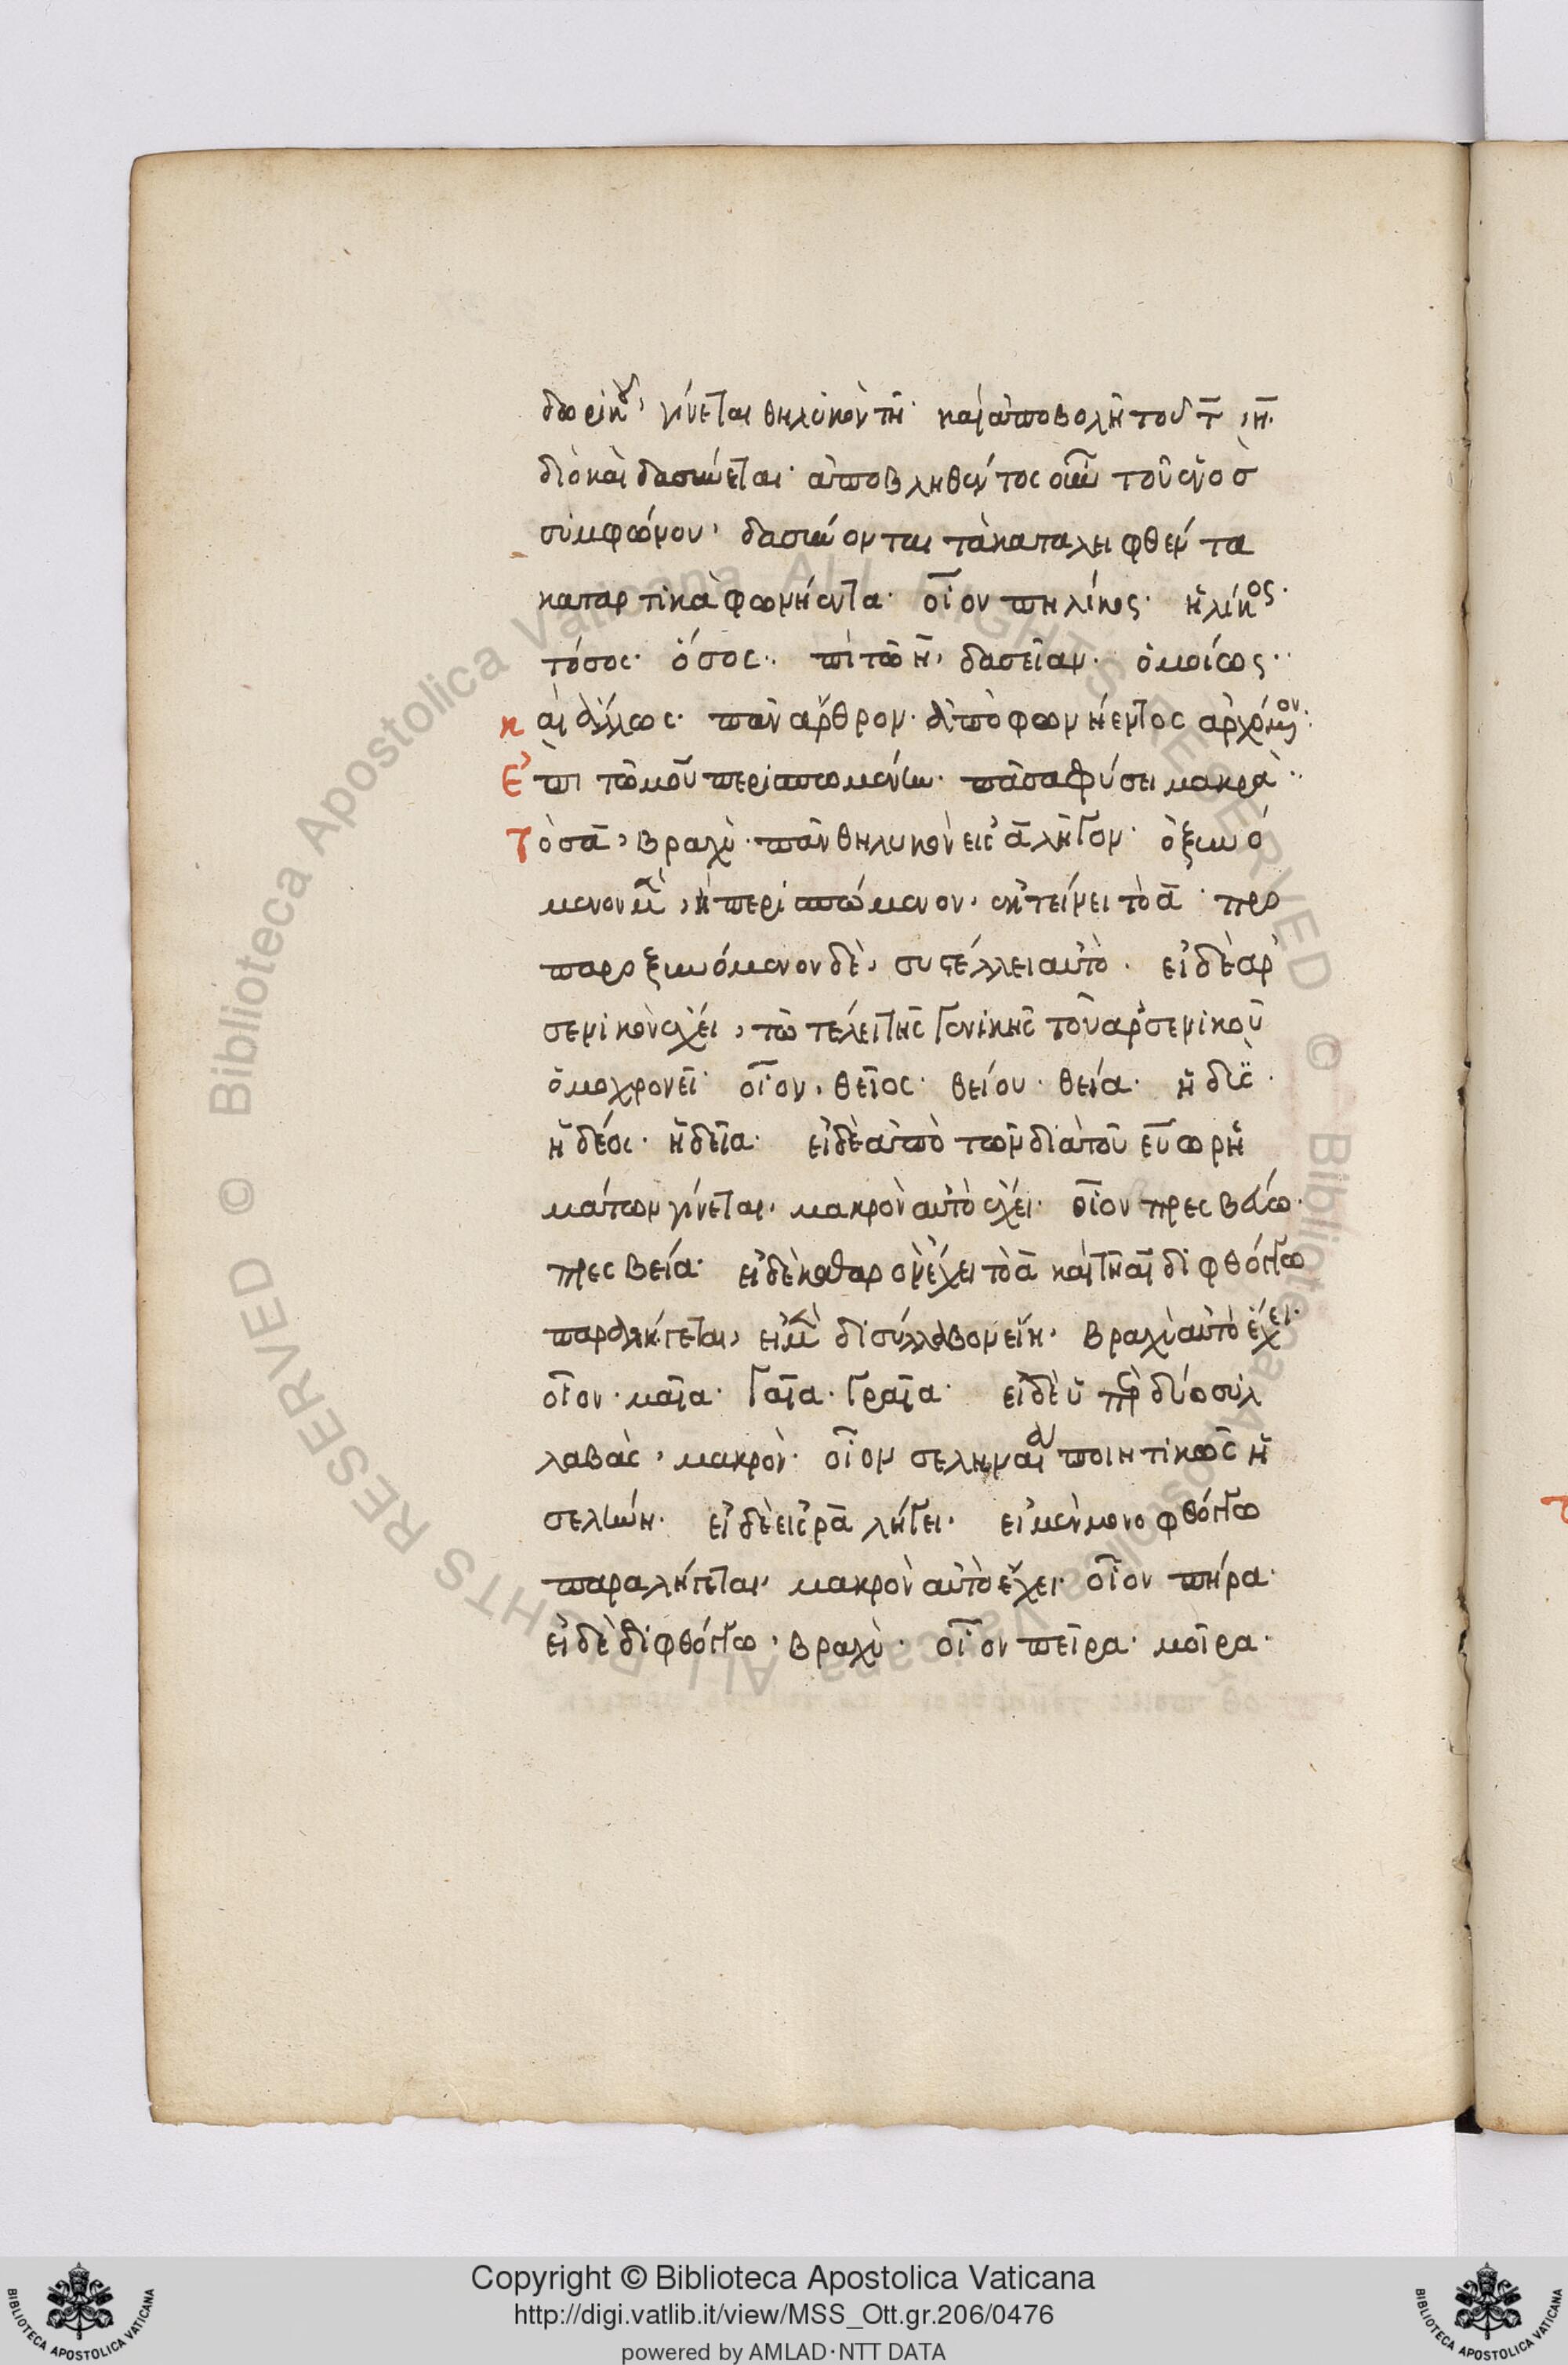 δωρικῶς, γίνεται θηλυκὸν τῆ· καὶ ἀποβολῆ τοῦ τ̄, ἡ·
διὸ καὶ δασύνεται· ἀποβληθέντος οὖν τοῦ ἑνὸσ
συμφώνου, δασύνονται τὰ καταλειφθέντα
καταρτικὰ φωνήεντα· οἷον πηλίκος· ἡλίκος·
τόσος· ὅσος·· ἐπὶ τῶ ἡ, δασεῖαν· ὁμοίως··
καὶ ἄλλως· πᾶν ἄρθρον· ἀπὸ φωνήεντος ἀρχόμενον:
Ἐπὶ τῶ μοῦ περισπωμένην· πᾶσα φύσει μακρὰ··
Τὸ σᾱ, βραχὺ· πᾶν θηλυκὸν εἰς ᾱ λῆγον· ὀξυνό
μενον μὲν, ἢ περισπώμενον, ἐκτείνει τὸ ᾱ· προ
παροξυνόμενον δὲ, συστέλλει αὐτὸ· εἰ δὲ ἀρ
σενικὸν ἔχει, τῶ τέλει τῆς γενικῆς τοῦ ἀρσενικοῦ
ὁμοχρονεῖ· οἷον, θεῖος· θείου· θεία· ἡδὺς·
ἡδέος· ἡδεῖα· εἰ δὲ ἀπὸ τῶν διὰ τοῦ εύω ρη
μάτων γίνεται, μακρὸν αὐτὸ ἔχει· οἷον πρεσβεύω·
πρεσβεία· εἰ δὲ καθαρὸν ἔχει τὸ ᾱ καὶ τῆ αι διφθόγγω
παραλήγεται, εἰ μὲν δισύλλαβον εἴη, βραχὺ αὐτὸ ἔχει·
οἷον· μαῖα· γαῖα· γραῖα· εἰ δὲ ὑπὲρ δύο συλ
λαβὰς, μακρὸν· οἷον σεληναία ποιητικῶς ἡ
σελήνη· εἰ δὲ εἰς ρᾱ λήγει, εἰ μὲν μονοφθόγγω
παραλήγεται, μακρὸν αὐτὸ ἔχει· οἷον πήρα·
εἰ δὲ διφθόγγω, βραχὺ· οἷον πεῖρα· μοῖρα·
Copyright © Biblioteca Apostolica Vaticana
http://digi.vatlib.it/view/MSS_Ott.gr.206/0476
powered by AMLAD·NTT DATA